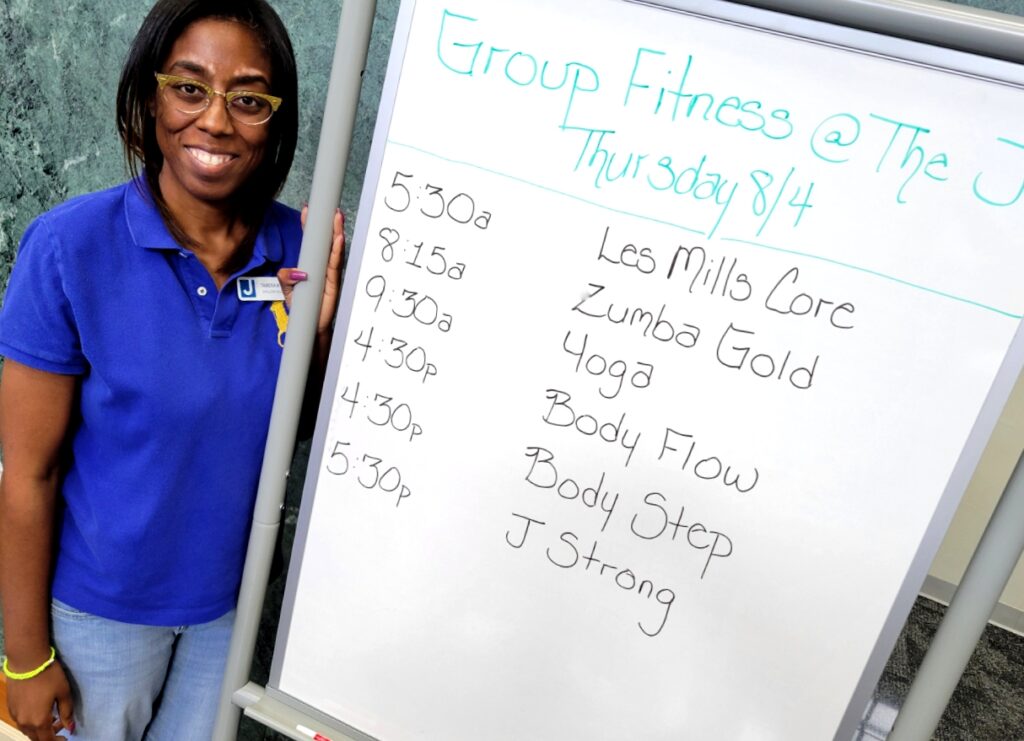 Group Fitness @ The J
Thursday 8/4
5:30a Les Mills Core
8:15a Zumba Gold
9:30a Yoga
4:30p Body Flow
4:30p Body Step
5:30p J Strong
J